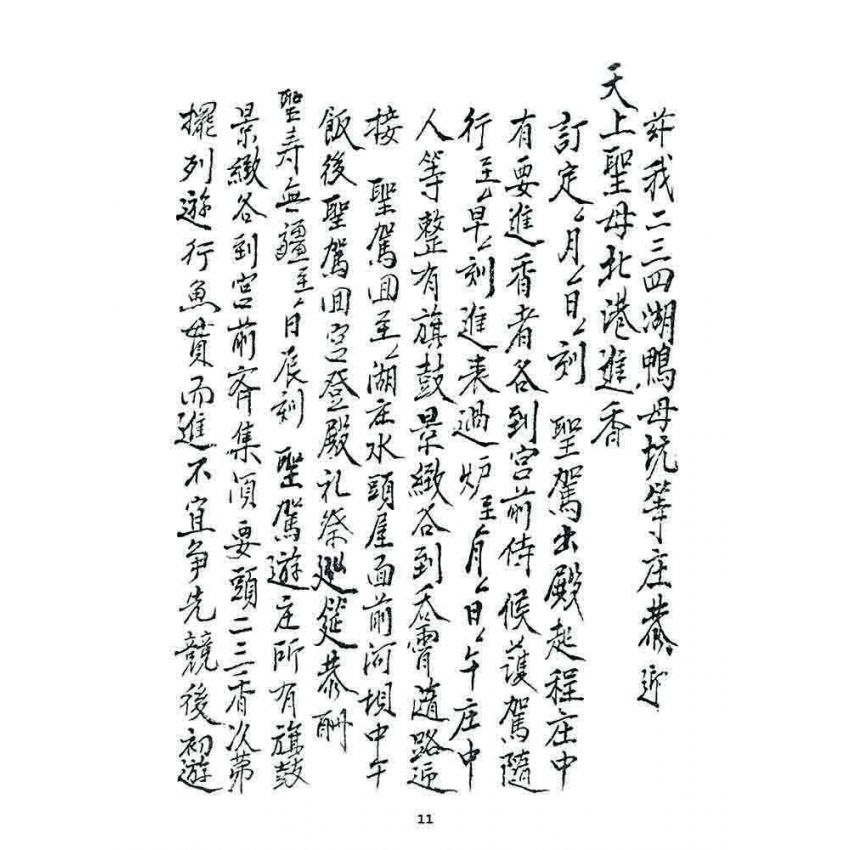 茲我二三四湖鴨母坑等庄恭迎
天上聖母北港進香
訂定厶月厶日厶刻 聖駕出殿起程庄中
有要進香者各到宮前侍候護駕隨
行至厶早厶刻進表過炉至厶月厶日厶午庄中
人等整有旗鼓景緻各到吞霄道路迎
接 聖駕囬至厶湖庄水頭屋面前河垻中午
飯後聖駕囬宮登殿礼祭廵筵恭酬
聖壽無疆至厶日辰刻 聖駕遊庄所有旗鼓
景緻各到宮前齊集須要頭二三香次第
擺列遊行魚貫而進不宜争先競後初遊
11